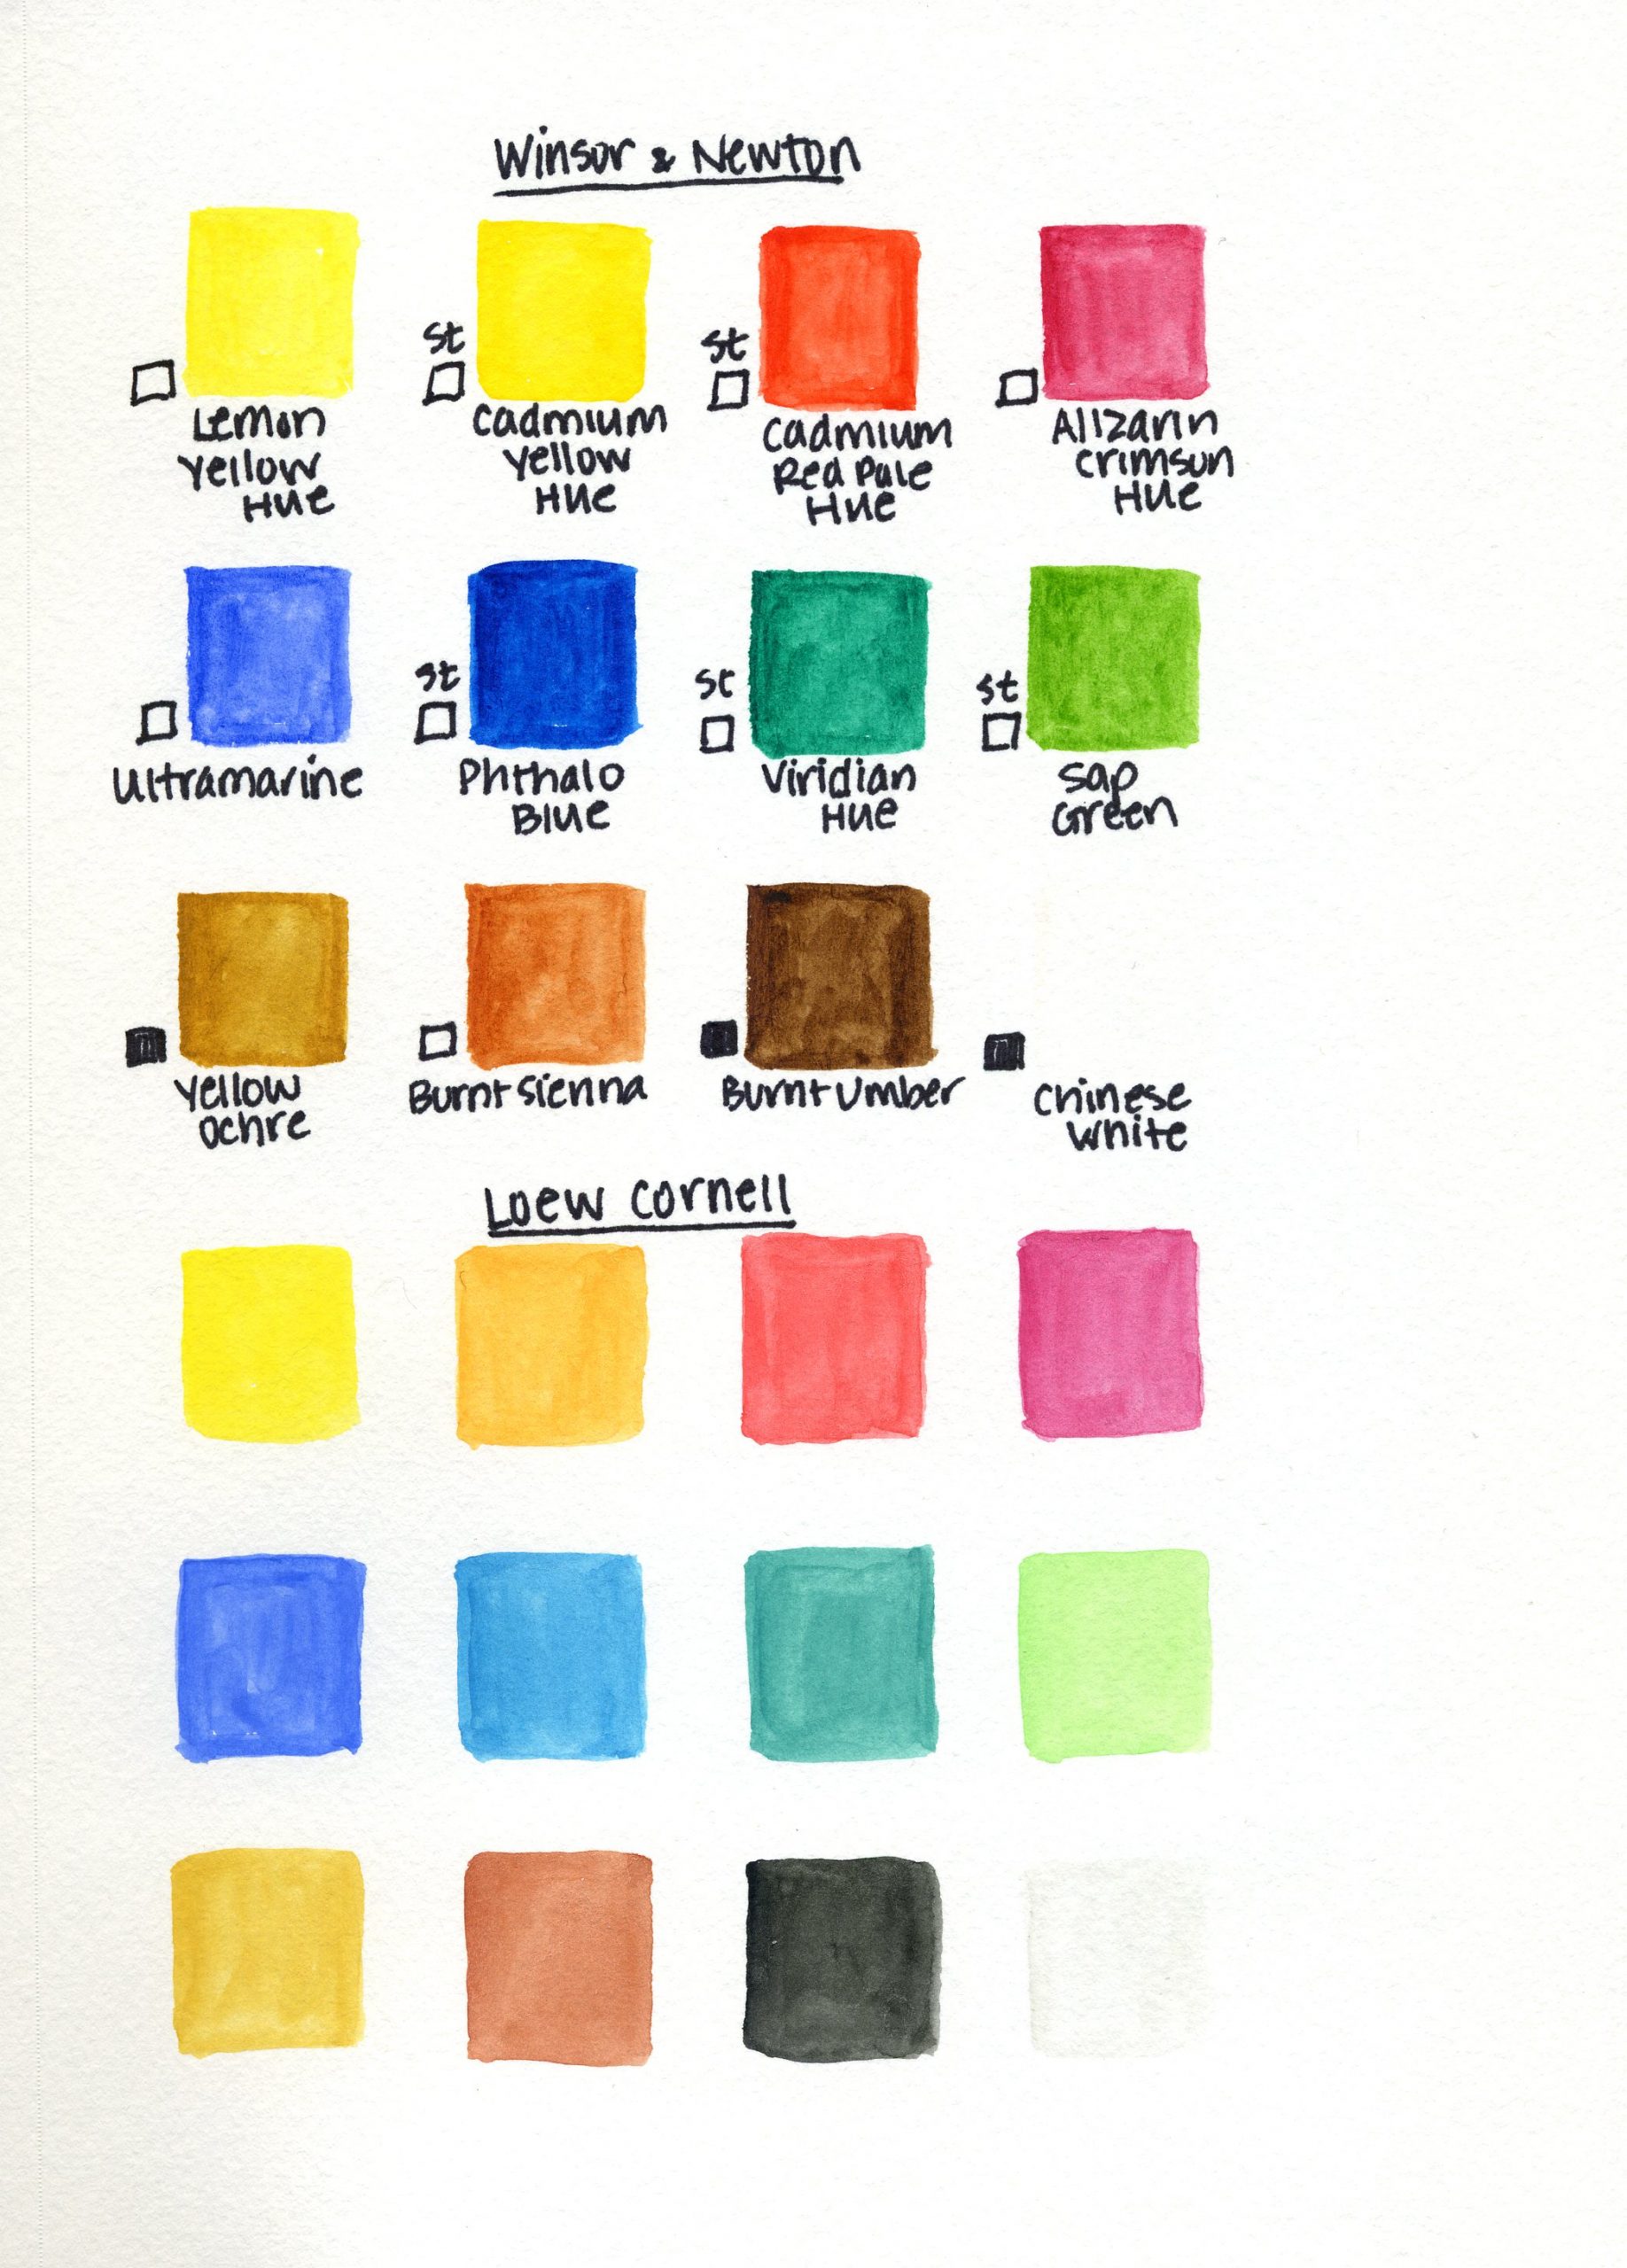 Winsor & Newton
st
st
Lemon
Yellow
Hue
Cadmium
Yellow
Hue
Cadmium
Red Pale
Hue
Alizarin
Crimson
Hue
st
st
st
Ultramarine
Phthalo
Blue
Viridian
Hue
Sap
Green
Yellow
Ochre
Burnt Sienna
Burnt Umber
Chinese
White
Loew Cornell